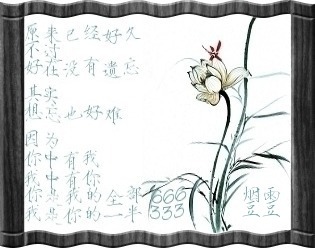 原来已经好久
不过
好在没有遗忘
其实
想忘也好难
因为
你中有我
我中有你
你是我的全部
我是你的一半
666
333
烟雨